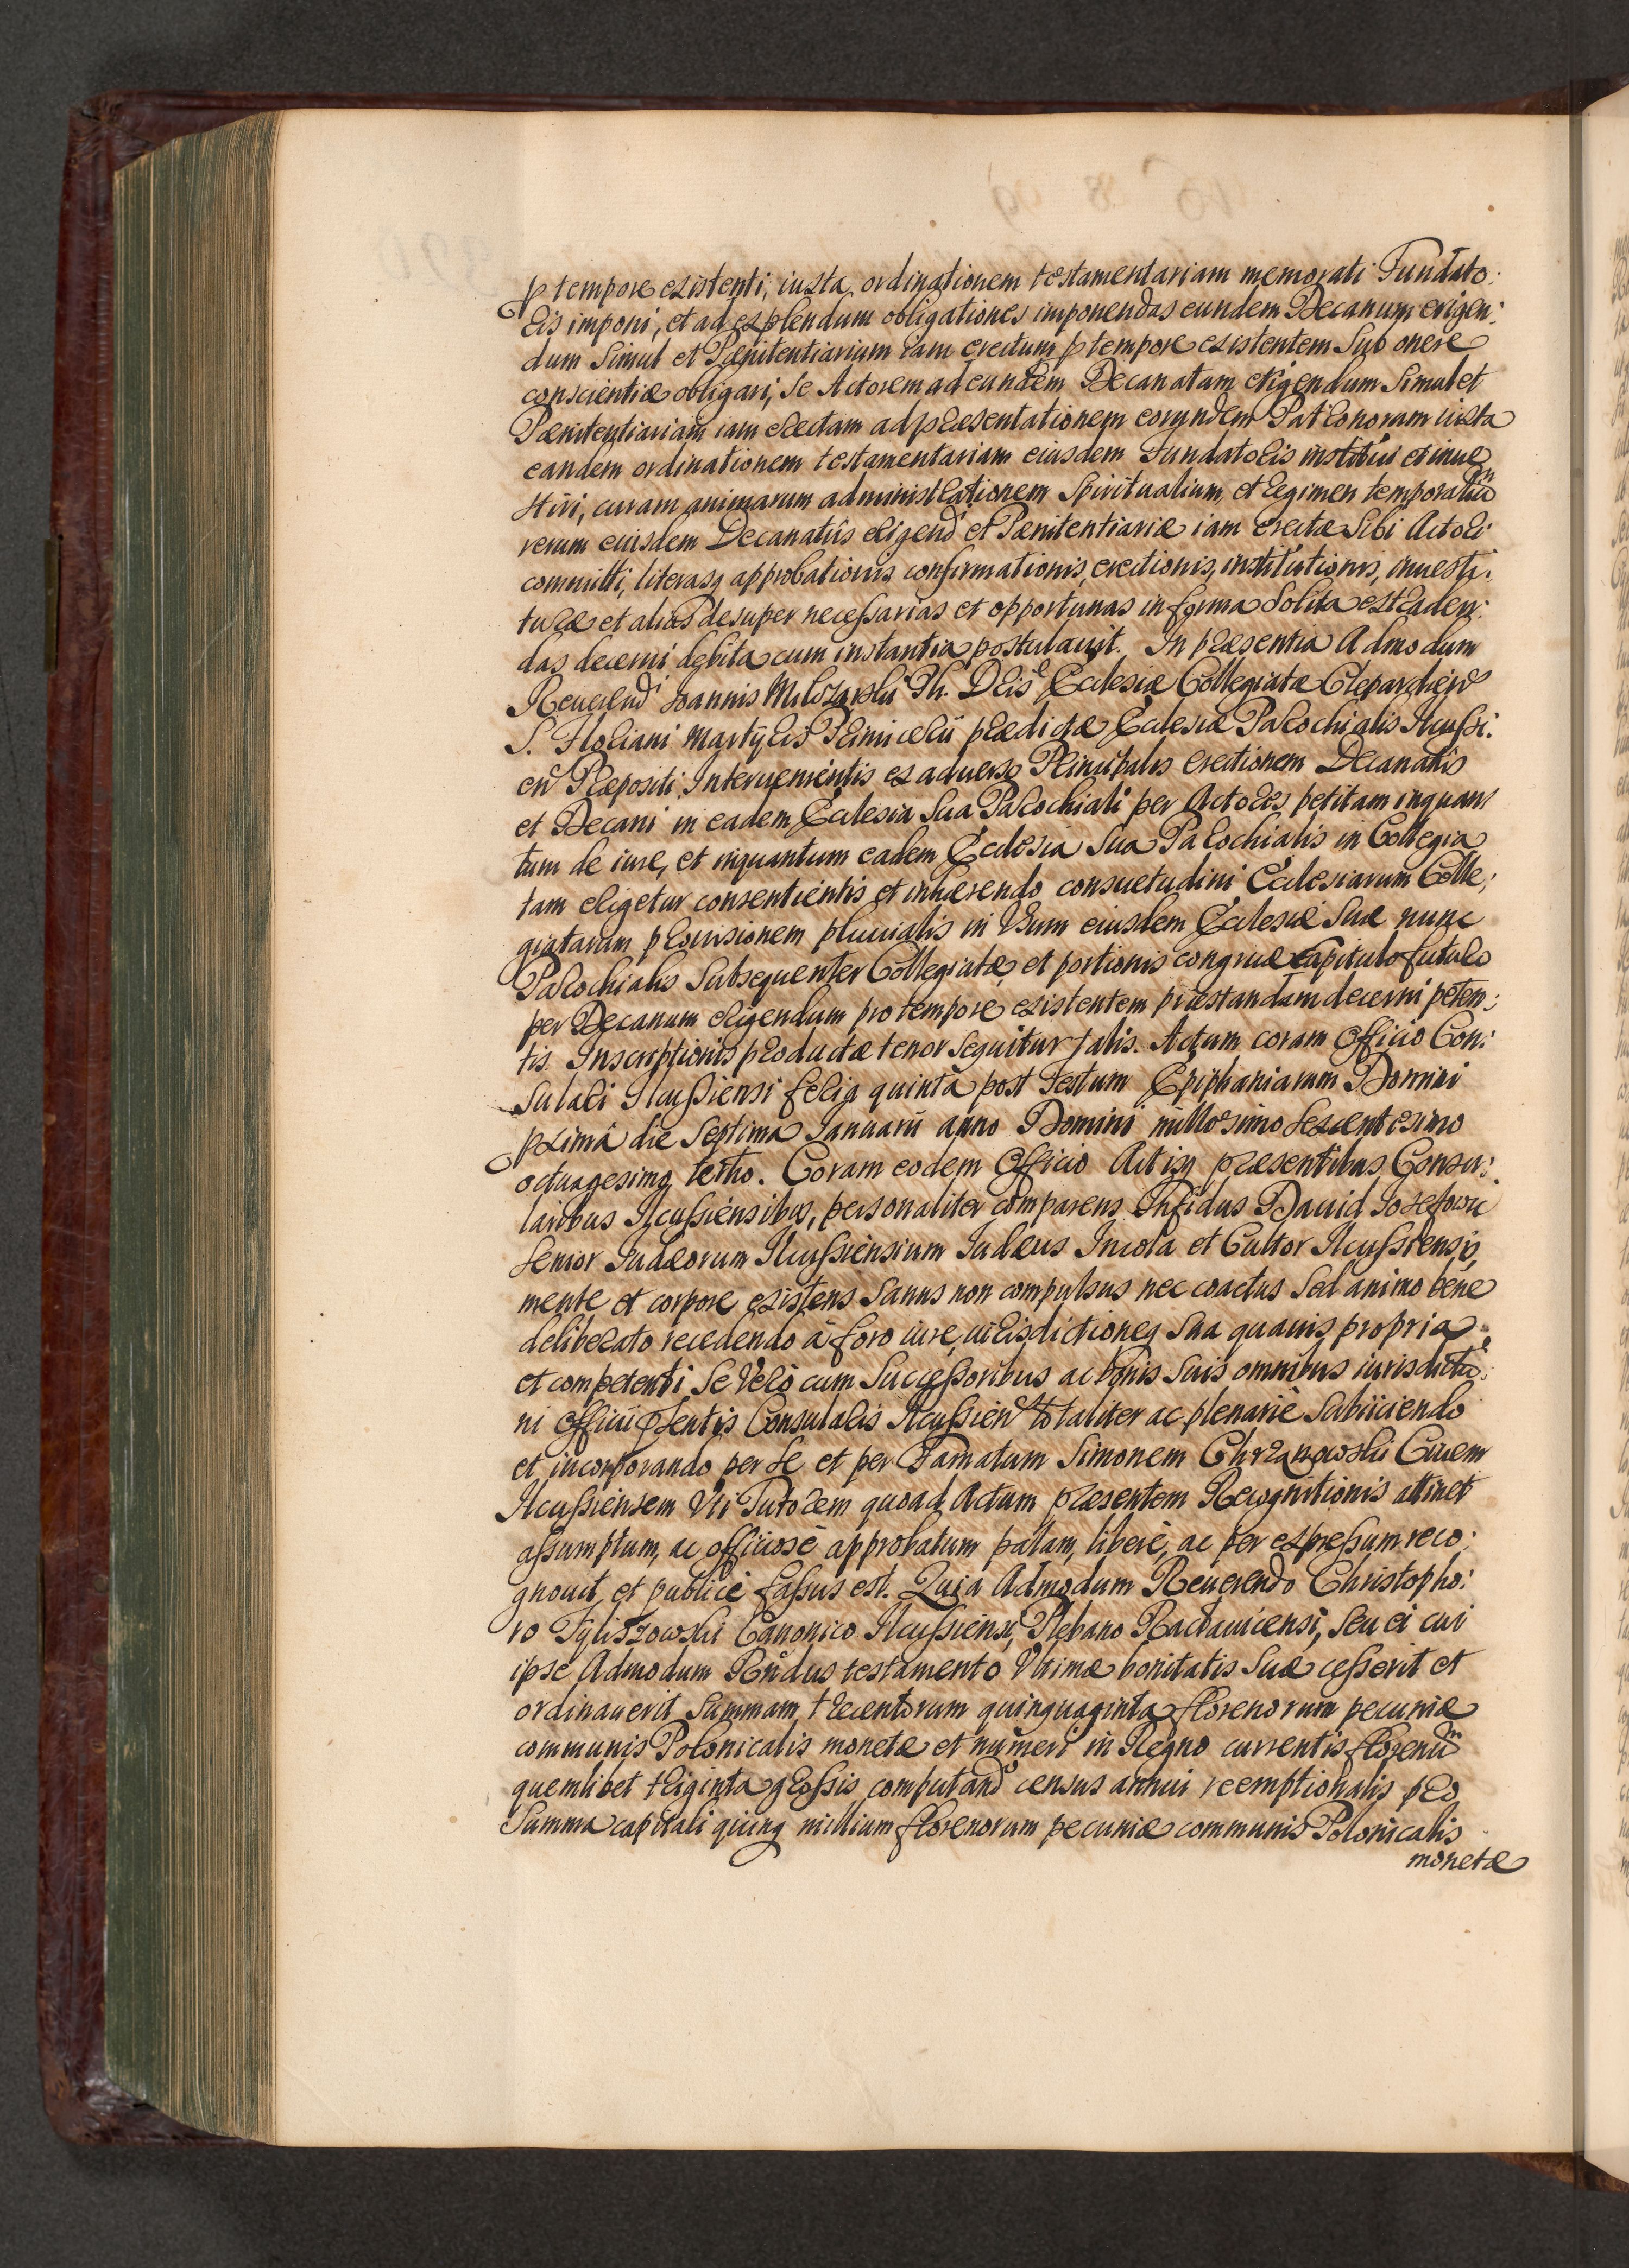 p tempore existenti, iuxta ordinationem testamentariam memorati Fundato:
ris imponi, et ad explendum obligationes imponendas eundem Decanum erigen:
dum simul et Pænitentiarium iam erectum p tempore existentem sub onere
conscientiæ obligari, se Actorem ad eundem Decanatum erigendum simul et
Pænitentiariam iam erectam ad præsentationem eorundem Patronorum iuxta
eandem ordinationem testamentariam eiusdem Fundatoris institui et inue
stiri, curam animarum administrationem spiritualium et regimen temporaliũ
rerum eiusdem Decanatûs erigend et Pænitentiariæ iam erectæ sibi Actori
committi, literasq approbationis confirmationis, erectionis, institutionis, inuesti:
turæ et alias desuper necessarias et opportunas in forma solita extraden:
das decerni debita cum instantia postulauit. In præsentia Admodum
Reuerend Joannis Ph. Dris Ecclesiæ Collegiatæ Clepardien
S. Floriani Martyris Primicerii prædictæ Ecclesiæ Parochialis Ilcussi:
en Præpositi, Interuenientis ex aduerso Principalis erectionem Decanatûs
et Decani in eadem Ecclesia sua Parochiali per Actores petitam inquan
tum de iure, et inquantum eadem Ecclesia sua Parochialis in Collegia
tam erigetur consentientis et inhærendo consuetudini Ecclesiarum Colle:
giatarum prouisionem pluuialis in Vsum eiusdem Ecclesiæ suæ nunc
Parochialis subsequenter Collegiatæ, et portionis congruæ Capitulo futuro
per Decanum erigendum pro tempore existentem præstandam decerni peten:
tis. Inscriptionis productæ tenor sequitur talis. Actum coram Officio Con:
sulari Ilcussiensi feria quinta post Festum Epiphaniarum Domini
pximâ die septima Januarii anno Domini millesimo sexcentesimo
octuagesimo tertio. Coram eodem Officio Actisq præsentibus Consu:
laribus Ilcussiensibus, personaliter comparens Infidus Dauid Josefowic
senior Iudæorum Ilcussiensium Iudæus Incola et Cultor Ilcussiensis,
mente et corpore existens sanus non compulsus nec coactus sed animo bene
deliberato recedendo à foro iure, iurisdictioneq sua quauis propria
et competenti se verò cum successoribus ac bonis suis omnibus iurisdictio:
ni officii pñtis Consularis Ilcussien totaliter ac plenariè subiiciendo
et incorporando per se et per Famatum Simonem Chrzanowski Ciuem
Ilcussiensem Vti Tutorem quoad Actum præsentem Recognitionis attinet
assumptum, ac officiosè approbatum palam, liberè, ac per expressum reco:
gnouit, et publicè fassus est. Quia Admodum Reuerendo Christopho:
ro Tyliszowski Canonico Ilcussiensi, Plebano Racłauicensi, seu ei cui
ipse Admodum Rndus testamento Vltimæ bonitatis suæ cesserit et
ordinauerit summam trecentorum quinquaginta florenorum pecuniæ
communis Polonicalis monetæ et numeri in Regno currentis florenũ
quemlibet triginta grossis computand census annui reemptionalis pro
summa capitali quinq millium florenorum pecuniæ communis Polonicalis
monetæ